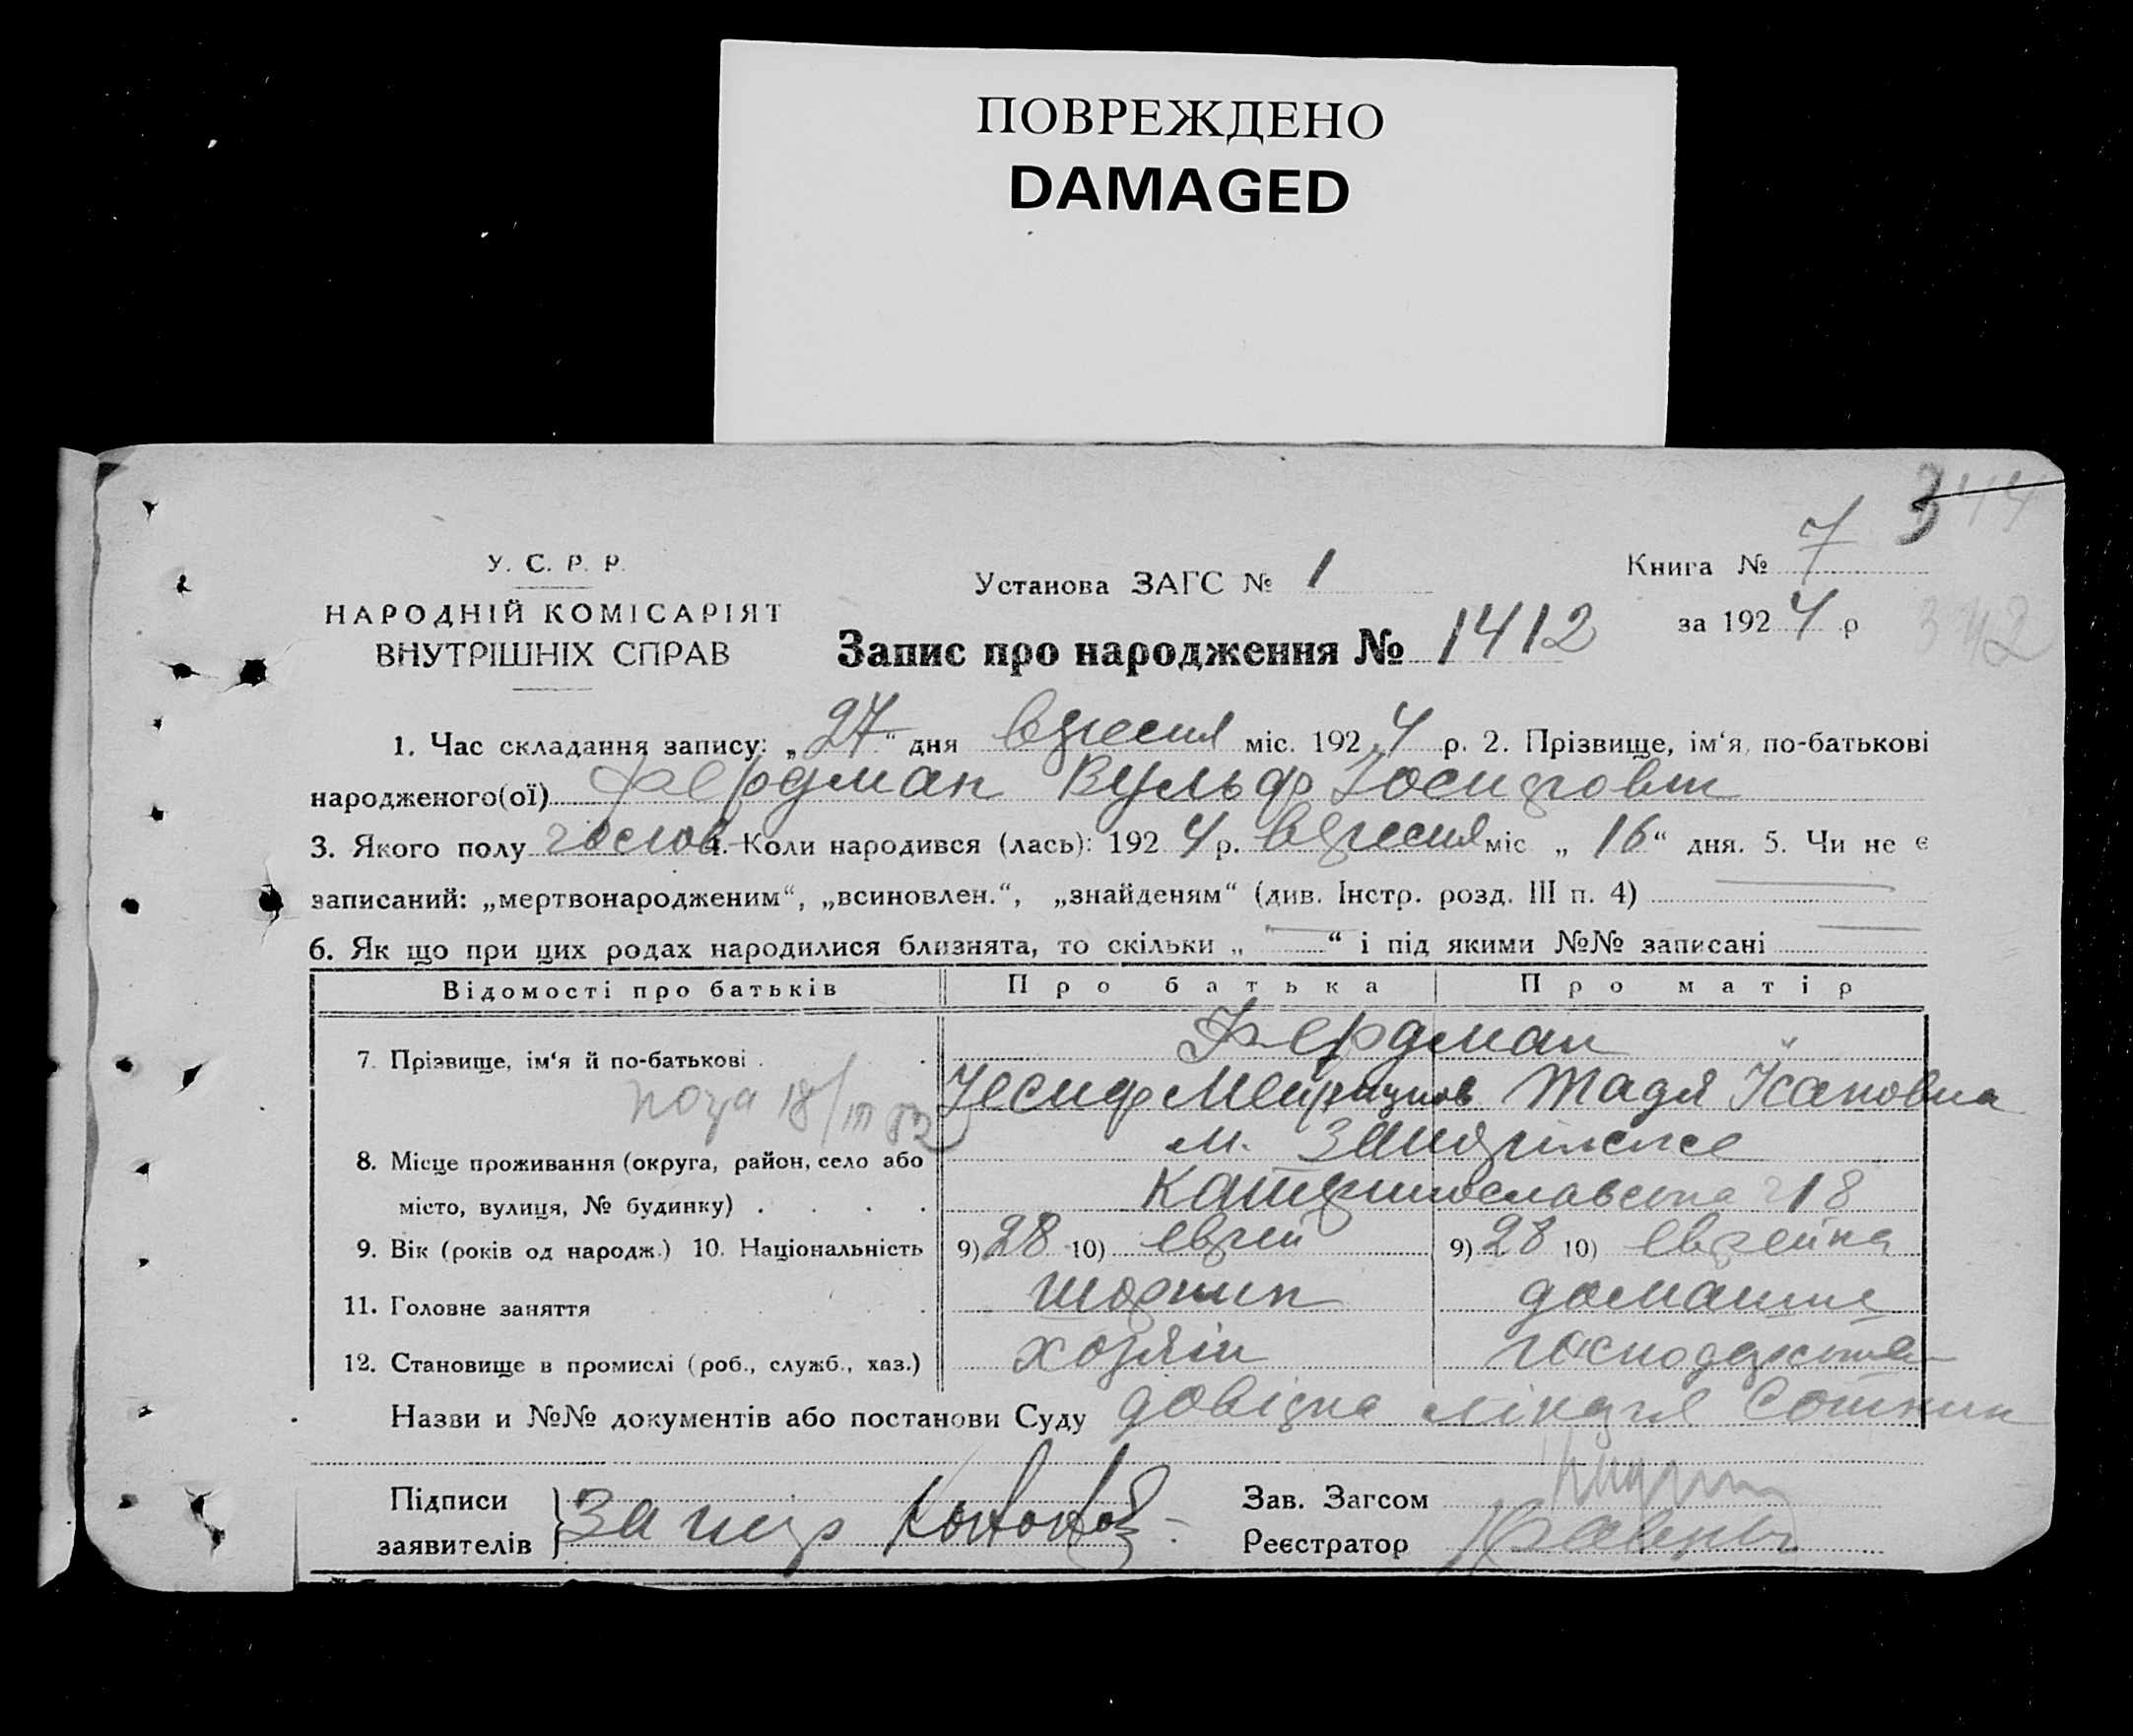 ПОВРЕЖДЕНО
DAMAGED
344
У. С. Р. Р.
НАРОДНІЙ КОМІСАРІЯТ
ВНУТРІШНІХ СПРАВ
Установа ЗАГС № 1
Книга № 7
за 1924 р
342
Запис про народження № 1412
1. Час складання запису: „27“ дня вересня міс. 1924 р. 2. Прізвище, ім‘я, по-батькові
народженого(ої) Фердман Вульф Іосипович
3. Якого полу 4. Коли народився (лась): 1924 р. вересня міс „16“ дня. 5. Чи не є
записаний: „мертвонародженим“, „всиновлен.“, „знайденям“ (див. Інстр. розд. III п. 4)
6. Як що при цих родах народилися близнята, то скільки „ “ і під якими №№ записані
Відомості про батьків Про батька Про матір
Фердман
7. Прізвище, ім‘я й по-батькові
18/III
м. Запоріжже
8. Місце проживання (округа, район, село або
місто, вулиця, № будинку) Катеринославська 218
9. Вік (років од народж.) 10. Національність 9) 28 10) еврей 9) 28 10) еврейка
11. Головне заняття шорник домашнє
12. Становище в промислі (роб., служб., хаз.) хозяін господарство
Назви и №№ документів або постанови Суду довідка лікаря Сотник
Підписи
заявителів
Зав. Загсом
Реєстратор